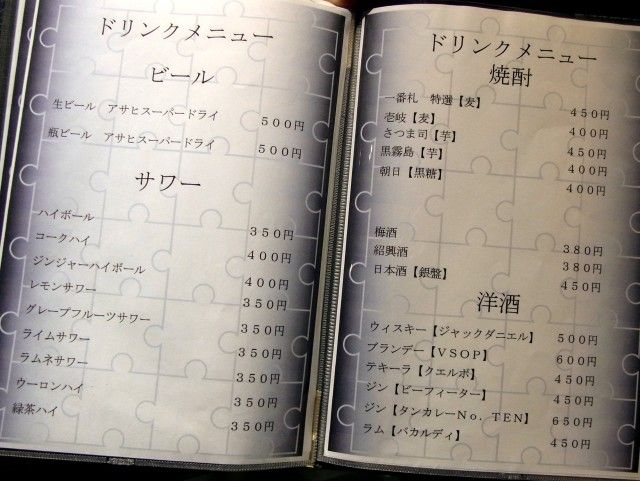 ドリンクメニュー
ビール
生ビール　アサヒスーパードライ　500円
瓶ビール　アサヒスーパードライ　500円
サワー
ハイボール　350円
コークハイ　400円
ジンジャーハイボール　400円
レモンサワー　350円
グレープフルーツサワー　350円
ライムサワー　350円
ラムネサワー　350円
ウーロンハイ　350円
緑茶ハイ　350円
ドリンクメニュー
焼酎
一番札　特選【麦】　450円
壱岐【麦】　400円
さつま司【芋】　450円
黒霧島【芋】　400円
朝日【黒糖】　400円
梅酒　380円
紹興酒　380円
日本酒【銀盤】　450円
洋酒
ウィスキー【ジャックダニエル】　500円
ブランデー【VSOP】　600円
テキーラ【クエルボ】　450円
ジン【ビーフィーター】　450円
ジン【タンカレーNo. TEN】　650円
ラム【バカルディ】　450円